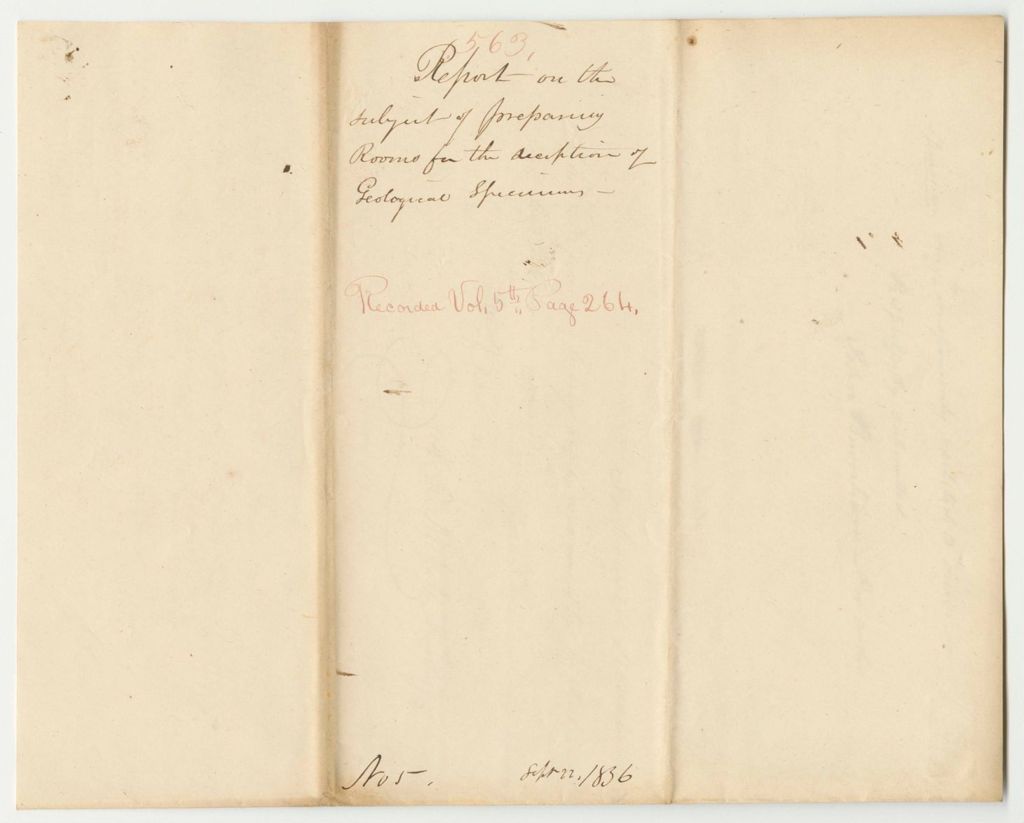 563,
Report on the
subject of preparing
Rooms for the reception of
Geological Specimens —
Recorded Vol, 5th, Page 264,
No 5.
Sept 22, 1836